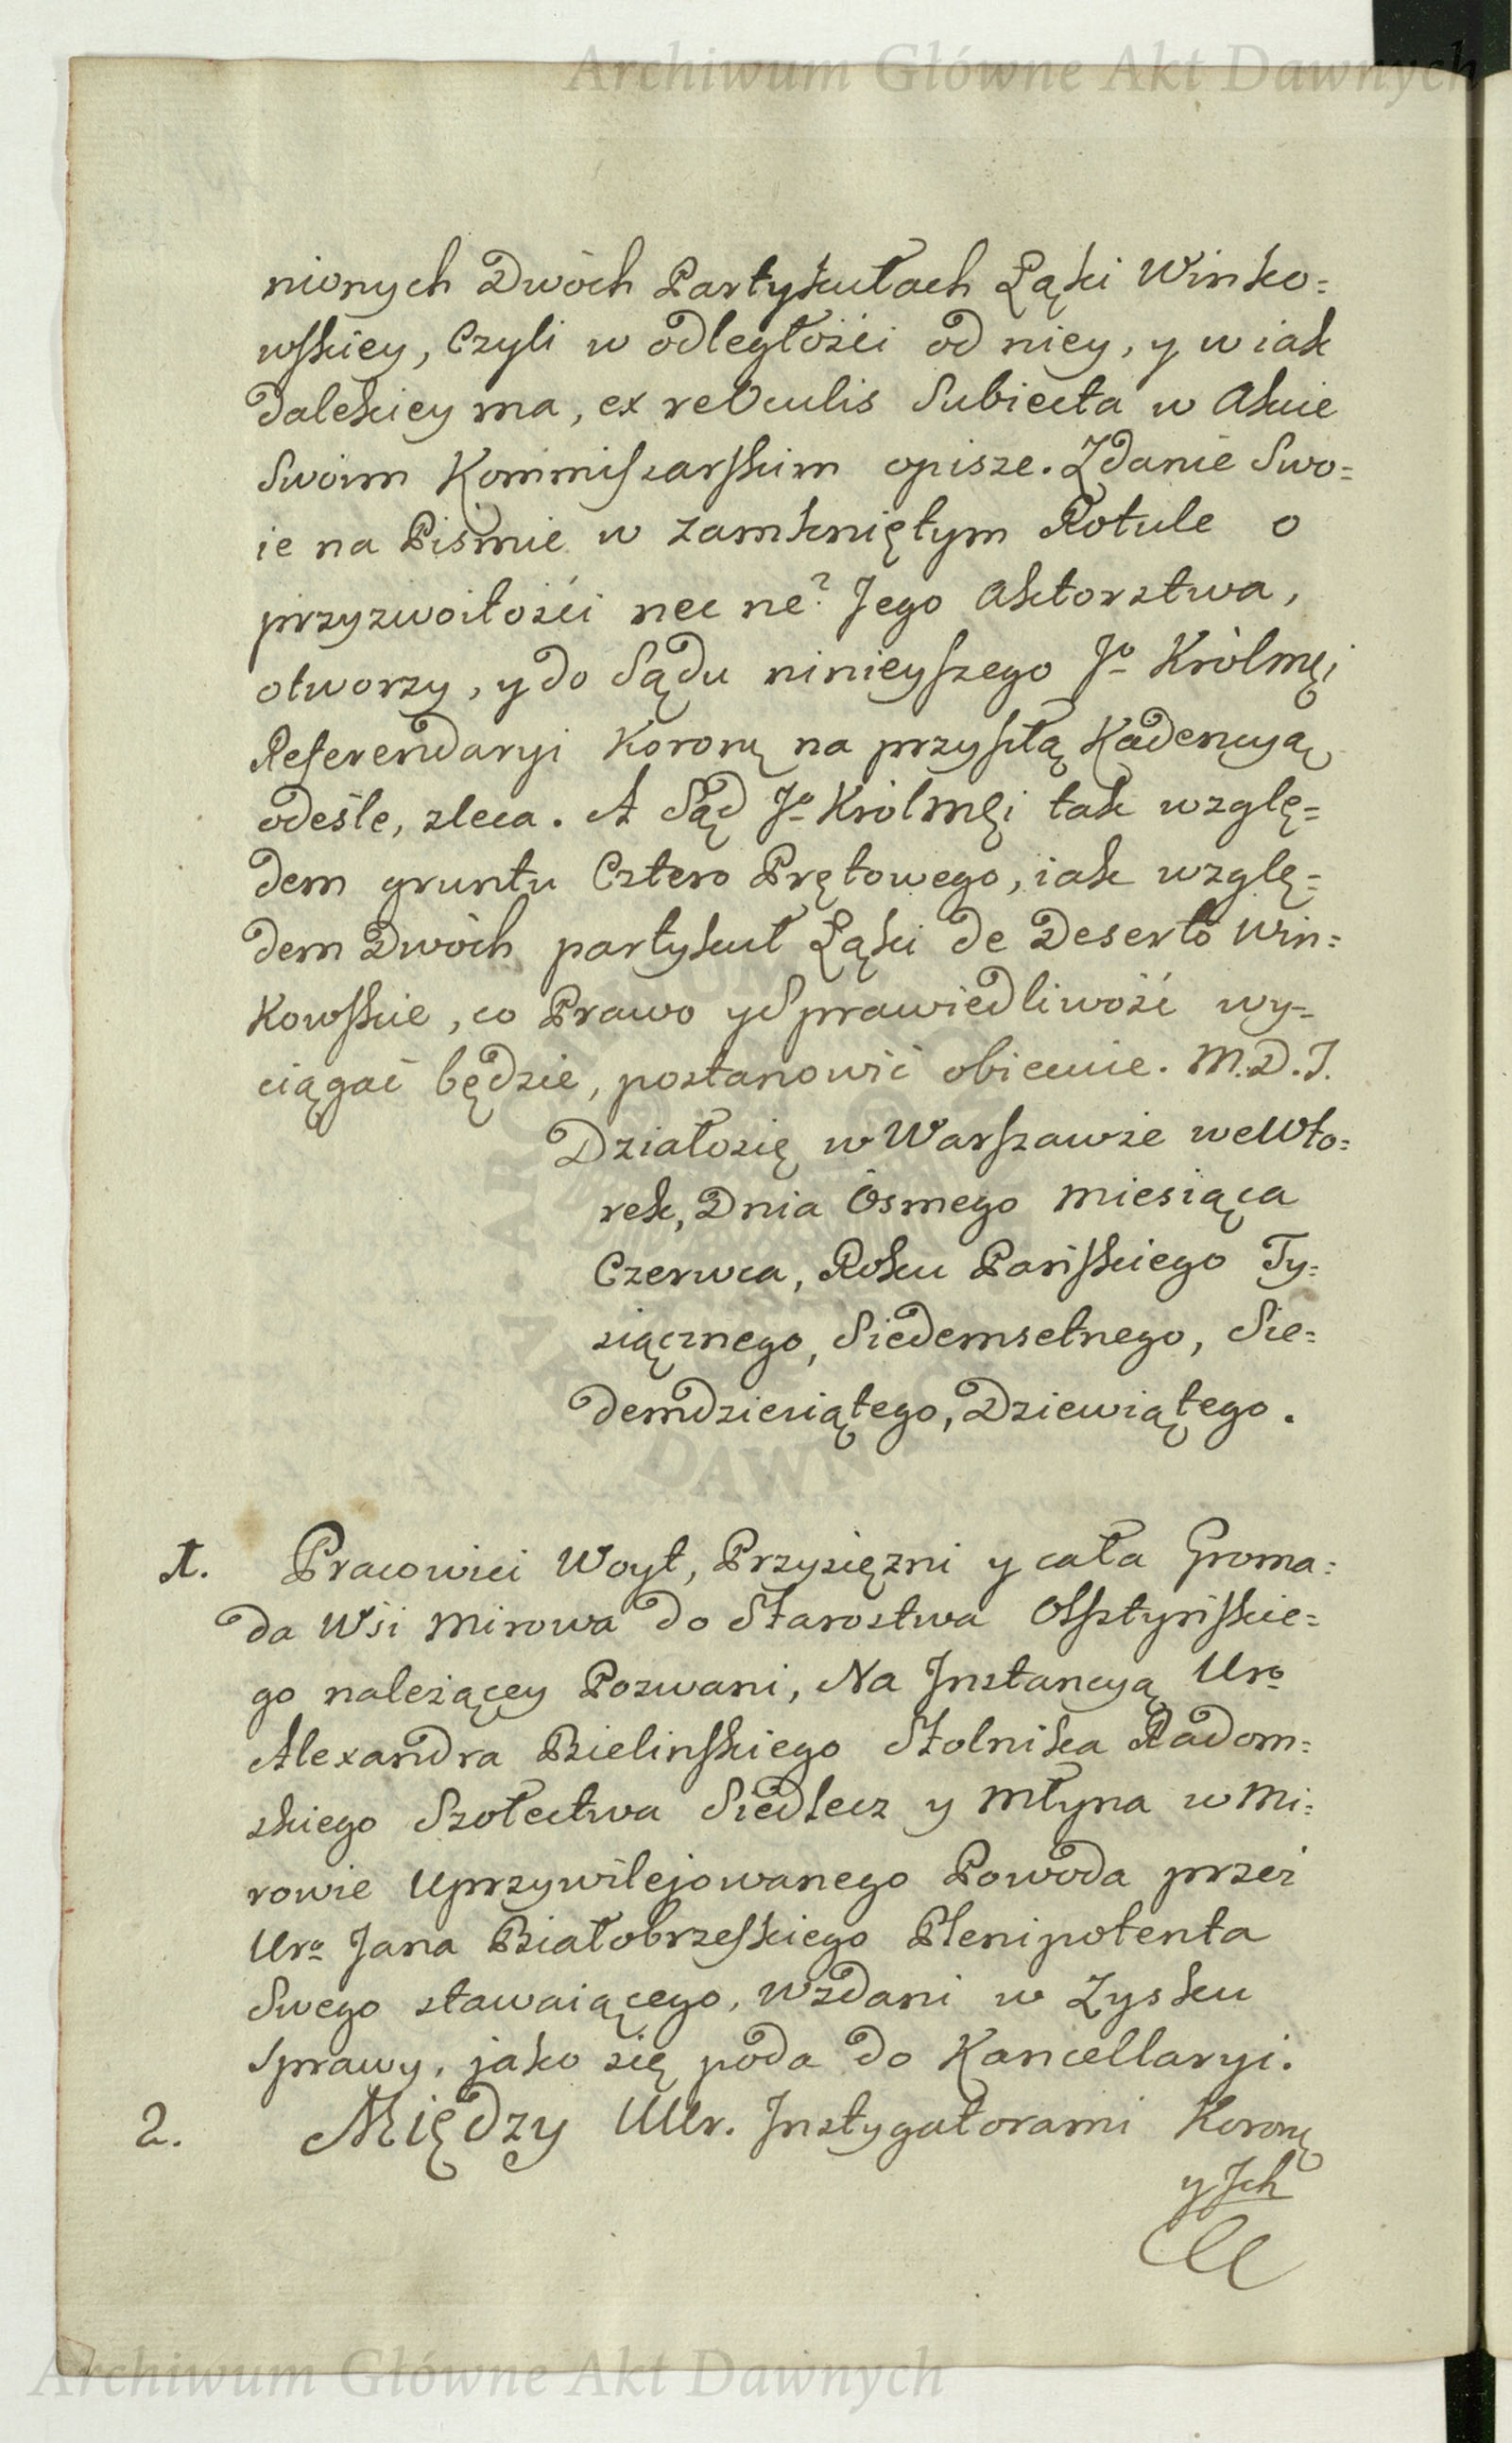 Archiwum Główne Akt Dawnych
nionych Dwóch Partykułach Łąki Winko=
wskiey, Czyli w odległości od niey, y w iak
dalekiey ma, ex reVculis Subiecta w Akcie
Swoim Kommiszarskim opisze. Zdanie Swo=
ie na Piśmie w zamkniętym Rotule o
przyzwoitości nec ne? Jego Aktorstwa,
otworzy, y do Sądu ninieyszego Jo Królmęi
Referendaryi Koronę na przyszłą Kadencyą
odeśle, zleca. A Sąd Jo Królmęi tak wzglę=
dem gruntu Cztero Prętowego, iak wzglę=
dem Dwóch partykuł Łąki de Deserto Win=
Kowskie, co Prawo y Sprawiedliwość wy=
ciągać będzie, postanowić obiecuie. M.D.J.
Działosię w Warszawie we Wto=
rek, Dnia Ósmego Miesiąca
Czerwca, Roku Pańskiego Ty=
siącznego, Siedemsetnego, Sie=
demdziesiątego, Dziewiątego.
1. Pracowici Woyt, Przysięzni y cała Groma=
da Wsi Mirowa do Starostwa Olsztyńskie=
go należącey Pozwani, Na Jnstancyą Uro
Alexandra Bielinskiego Stolnika Radom=
skiego Szołectwa Siedlecz y Młyna w Mi=
rowie Uprzywilejowanego Powoda przez
Uro Jana Białobrzeskiego Plenipotenta
Swego stawaiącego, wzdani w Zysku
Sprawy, jako się poda do Kancellaryi.
2. Między UUr. Jnstygatorami Koronę
y Jch
Archiwum Główne Akt Dawnych